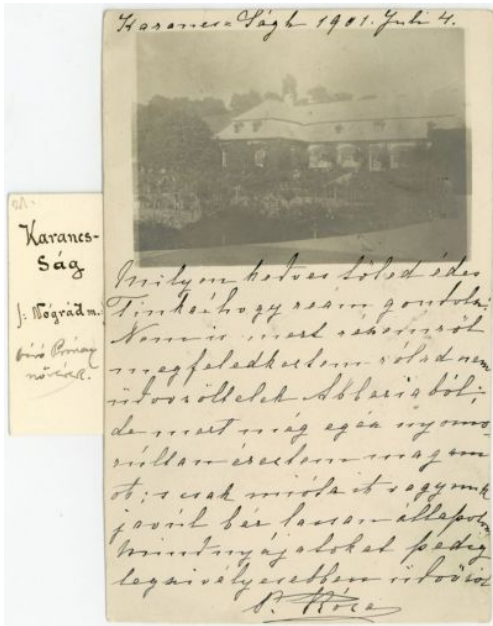 Karancs-Ságh 1901. Juli 4.
Karancs-
Ság
Nógrád m.
nővérek.
Milyen kedves tőled édes
hogy reám gondolsz.
Nem is mert részemről
megfeledkeztem rólad nem
üdvözöltelek Abbaziaból;
de mert még egész nyomo-
rúltan éreztem magam
ot; s csak mióta itt vagyunk
javúl bár lassan állapotom
Mindnyájatokat pedig
legszivélyesebben üdvözöl
P. Róza